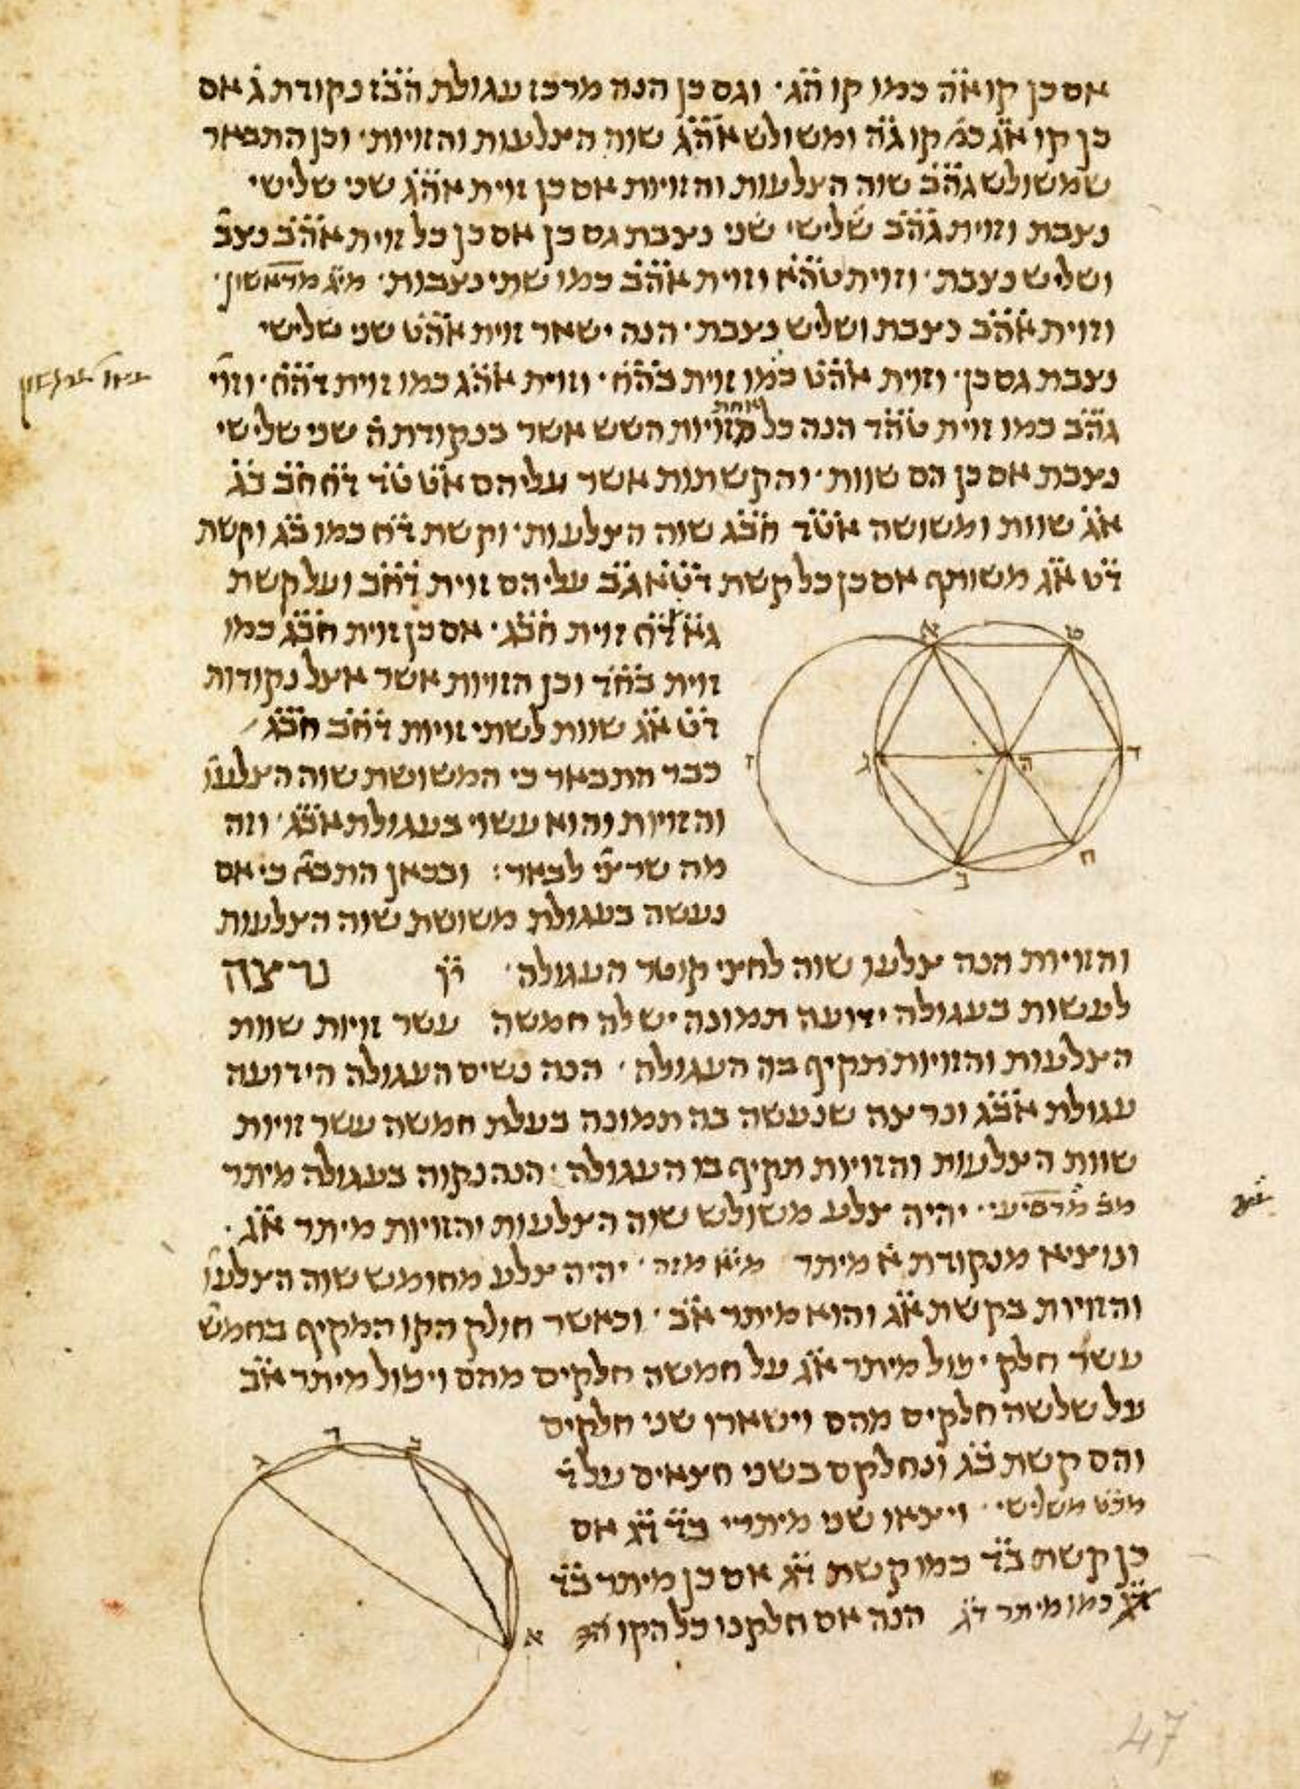 אם כן קו אה כמו קו הג. וגם כן הנה מרכז עגולת הבז נקודת ג אם
כן קו אג כמ' קו גה ומשולש אהג שוה הצלעות והזויות. וכן התבאר
שמשולש גהב שוה הצלעות והזויות אם כן זוית אהג שני שלישי
נצבת וזוית גהב שלישי שני נצבת גם כן אם כן כל זוית אהב נצב'
ושליש נצבת. וזוית טהא וזוית אהב כמו שתי נצבות. מיג מהראשון.
וזוית אהב נצבת ושליש נצבת. הנה ישאר זוית אהט שני שלישי
נצבת גם כן. וזוית אהט כמו זוית בהח. וזוית אהג כמו זוית דהח. וזוי'
גהב כמו זוית טהד הנה כל הזויות השש אשר בנקודת ה שני שלישי
אחת
נצבת אם כן הם שוות. והקשתות אשר עליהם אט טד דח חב בג
אג שוות ומשושה אטד חבג שוה הצלעות. וקשת דח כמו בג וקשת
דט אג משותף אם כן כל קשת דטאגב עליהם זוית דחב ועל קשת
גאדח זוית חבג. אם כן זוית חבג כמו
זוית בחד וכן הזויות אשר אצל נקודות
דט אג שוות לשתי זויות דחב חבג
כבר התבאר כי המשושת שוה הצלעו'
והזויות והוא עשוי בעגולת אבג. וזה
מה שרצי' לבאר: ובכאן התבא' כי אם
נעשה בעגולת משושת שוה הצלעות
והזויות הנה צלעו שוה לחצי קוטר העגולה. יו נרצה
לעשות בעגולה ידועה תמונה יש לה חמשה עשר זויות שוות
הצלעות והזויות תקיף בה העגולה. הנה נשים העגולה הידועה
עגולת אבג ונרצה שנעשה בה תמונה בעלת חמשה עשר זויות
שוות הצלעות והזויות תקיף בו העגולה. הנה נקוה בעגולה מיתר
יהיה צלע משולש שוה הצלעות והזויות מיתר אג.
ונוציא מנקודת א מיתר מיא מזה. יהיה צלע מחומש שוה הצלעו'
והזויות בקשת אג והוא מיתר אב. וכאשר חולק הקו המקיף בחמש
עשר חלק יפול מיתר אג על חמשה חלקים מהם ויפול מיתר אב
על שלשה חלקים מהם וישארו שני חלקים
והם קשת בג ונחלקם בשני חצאים על ד
משלישי. ויצאו שני מיתרי בד דג אם
כן קשת בד כמו קשת דג אם כן מיתר בד
כמו מיתר דג הנה אם חלקנו כל הקו
א
ט
ד
ה
ג
ז
ח
ב
ג
ד
ב
א
47